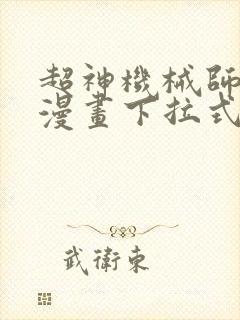 超神機械師
漫畫下拉式
武衛東